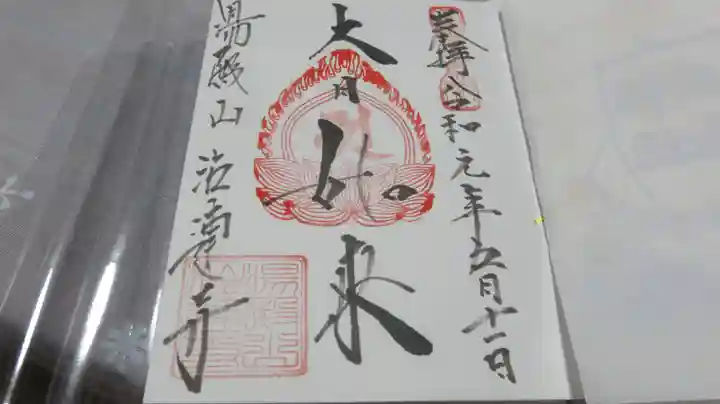 奉拝 令和元年五月十一日
大日如来
湯殿山 注連寺